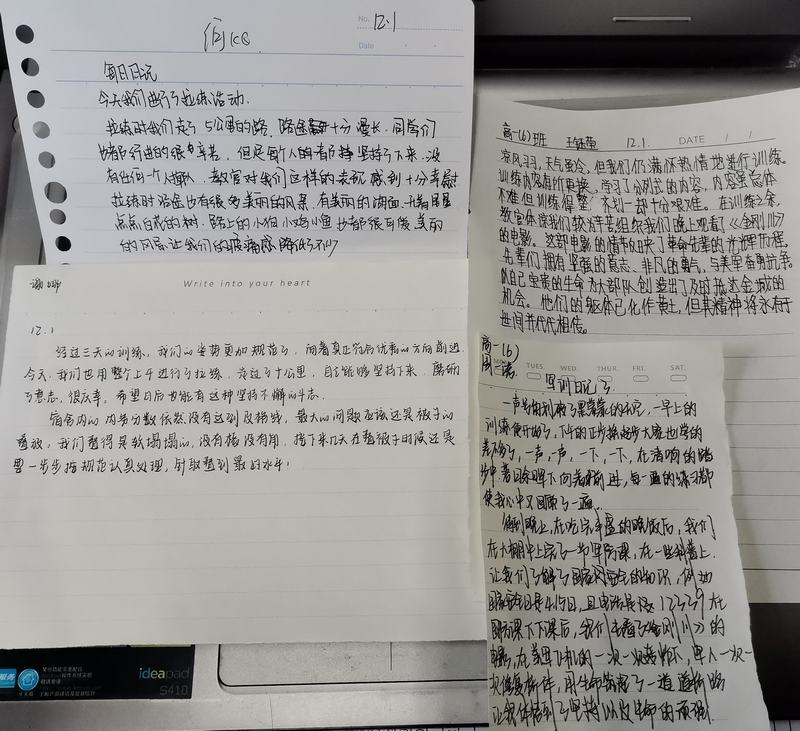 No. 12.1
Date
每日日记
今天我们进行了拉练活动.
拉练时我们走了5公里的路,路途十分漫长.同学们
也都行进的很辛苦,但是每个人的都坚持了下来.没
有任何一个人掉队.教官对我们这样的表现感到十分
拉练时沿途也有很多美丽的风景.有美丽的湖面.
点点白花的树.路上的小狗小鸡小鱼也都很可爱.美丽
的风景让我们的疲痛感降低了不少
Write into your heart
12.1
经过三天的训练,我们的坐势更加规范了,向着真正的优秀的方向前进.
今天.我们也用整个上午进行了拉练,走过了十公里,自己能够坚持下来.磨砺
了意志,很庆幸.希望日后也能有这种坚持不懈的斗志.
宿舍内的内务分数依然没有达到及格线,最大的问题应该还是被子的
叠放,我们叠得是软塌塌的,没有棱没有角.接下来几天在叠被子的时候还是
要一步步按规范认真处理,争取叠到最好的水平!
高一(6)班 12.1. DATE / /
凉风习习,天气虽冷,但我们仍满怀热情地进行训练.
训练内容有所更换,学习了分列式的内容,内容虽总体
不难但训练得整齐划一却十分艰难。在训练之余,
教官体谅我们较为辛苦组织我们晚上观看了《金刚川》
的电影。这部电影的情节反映了革命先辈的光辉历程。
先辈们拥有坚强的意志、非凡的勇气,与美军奋勇抗争.
以自己宝贵的生命为大部队创造出了及时抵达金城的
机会。他们的躯体已化作黄土,但其精神将永存于
世间并代代相传。
高一(6)
TUES. WED. THUR. FRI. SAT.
军训日记3
一声号角划破了黑蒙蒙的天空,一早上的
训练便开始了,下午的正步操起步大家也学的
差不多了,一声,一声,一下,一下,在清响的踏
步中.着日余晖下向着前进,每一遍的练习都
使我心中又回顾了一遍..
等到晚上,在吃完丰盛的晚饭后,我们
在大棚中上完了一节军防课,在一些科普上.
让我们了解了国家安全的知识,例如
国家安全日是4月15日,且电话是12339.在
国防课下下课后,我们去看了《金刚川》的
电影,在美军飞机的一次一次轰炸下,军人一次一
次修复桥,用生命筑起了一道道桥路
让我体悟到了坚持以及生命的顽强.
ideapad
S410